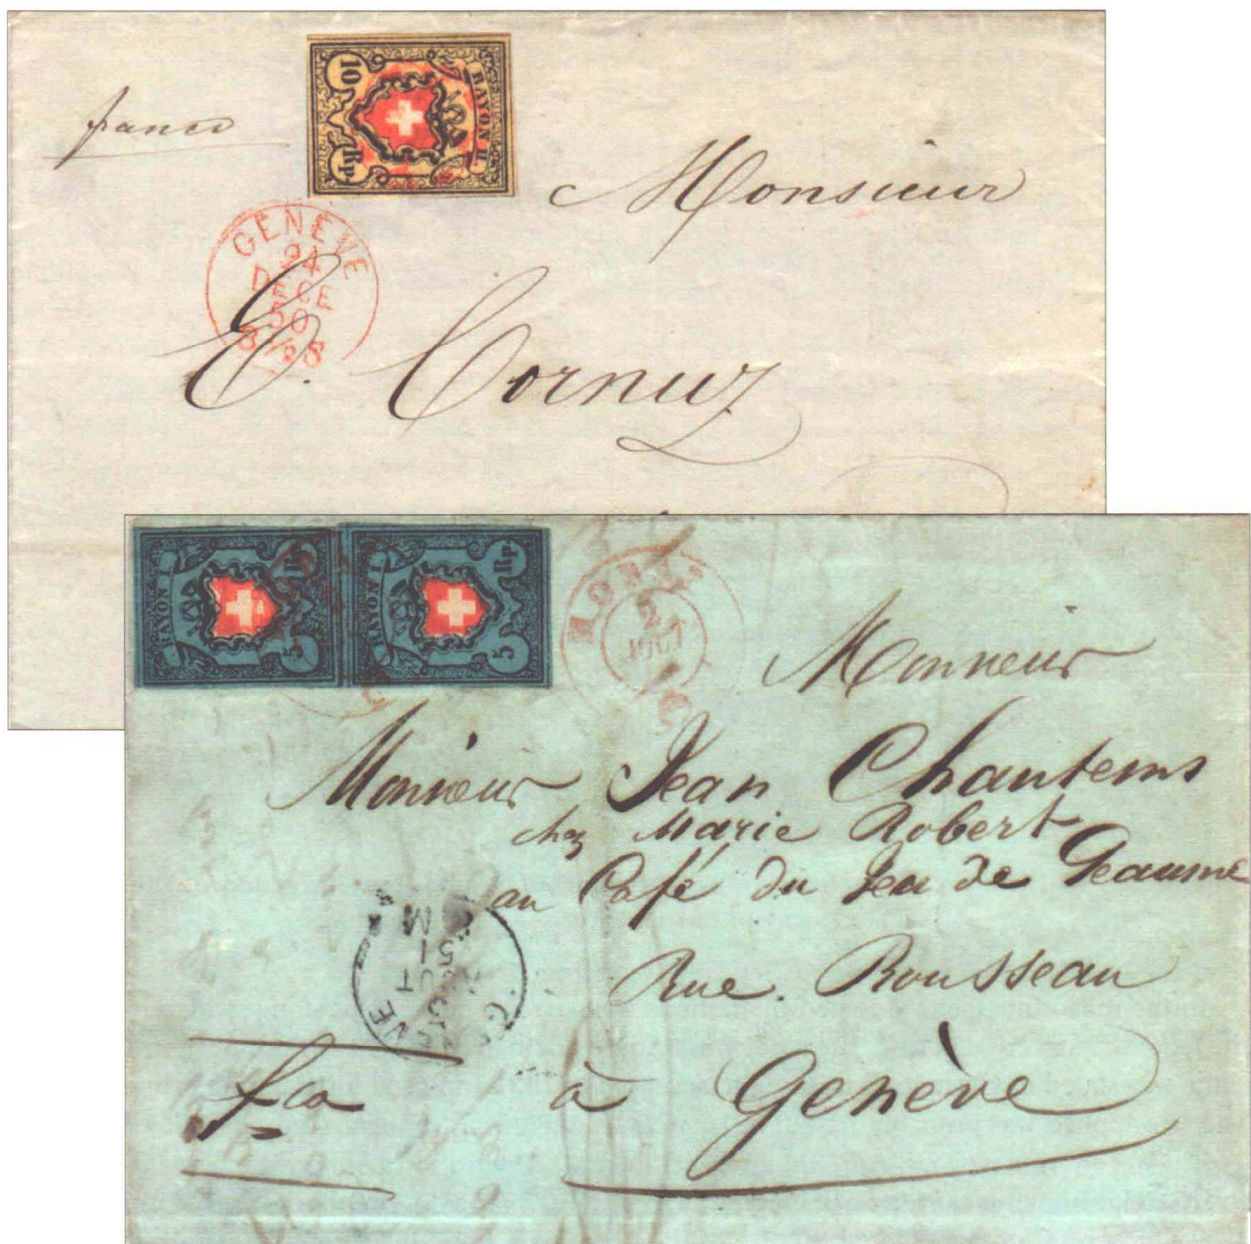 franco
10
Rp
RAYON II.
GENEVE
24
DECE
50
Monsieur
E. Cornuz
RAYON I.
5
Rp
RAYON I.
5
Rp
MORAT
2
AOUT
Monsieur
Monsieur Jean Chantems
chez Marie Robert
au Café du Jeu de Peaume
Rue Rousseau
fco à Genève